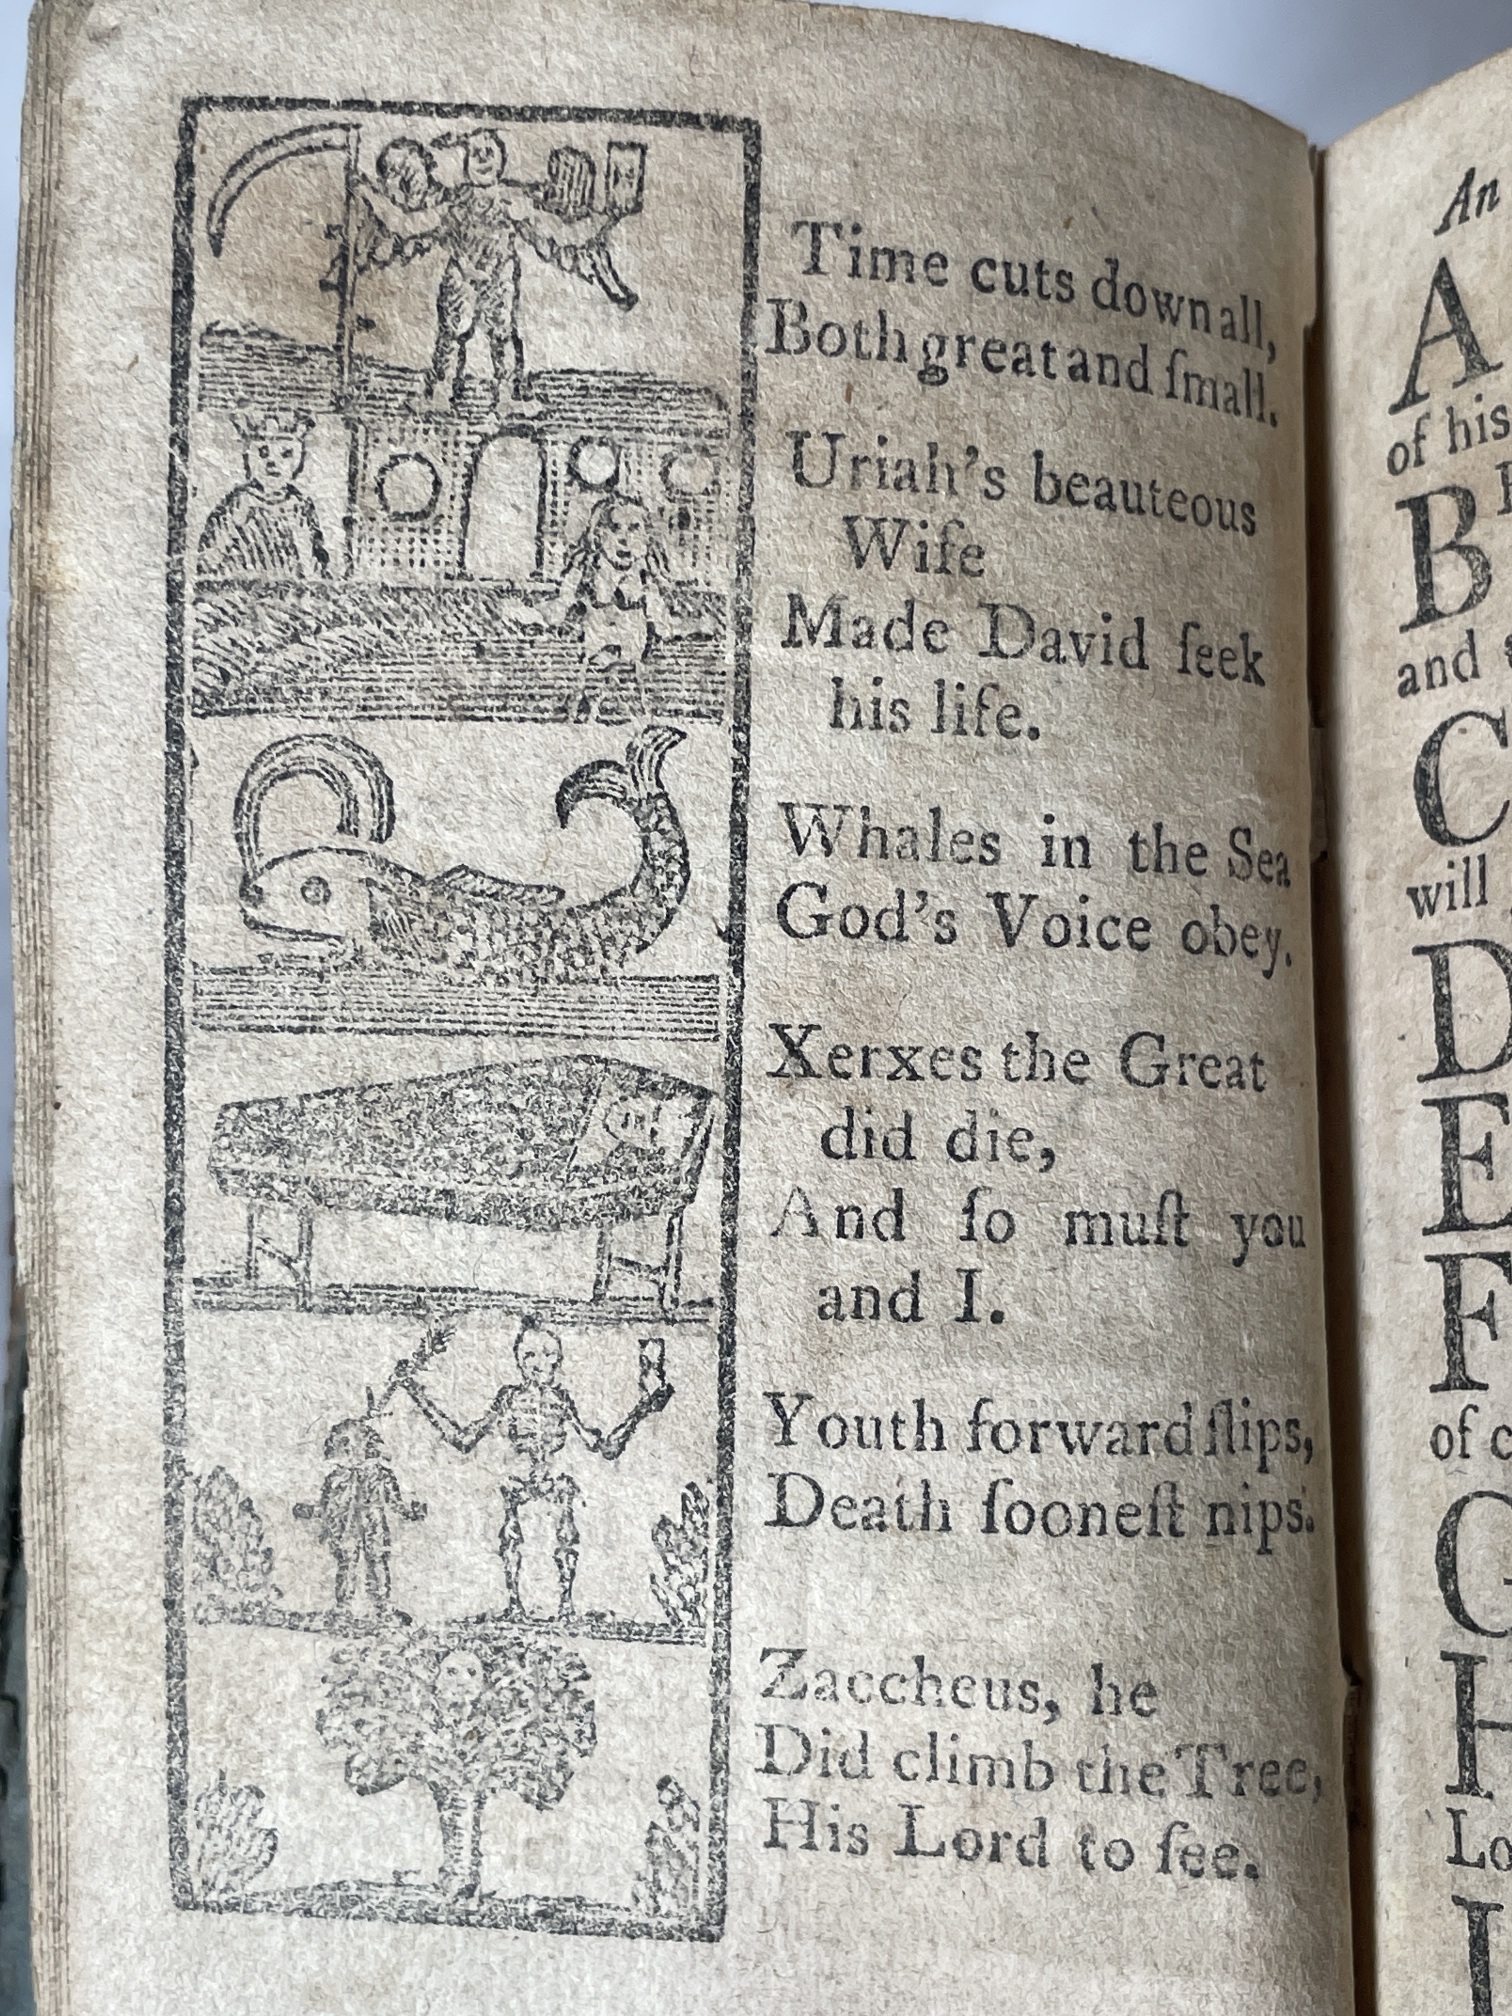 Time cuts down all,
Both great and ſmall.
Uriah's beauteous
Wife
Made David ſeek
his life.
Whales in the Sea
God's Voice obey.
Xerxes the Great
did die,
And ſo muſt you
and I.
Youth forward ſlips,
Death ſooneſt nips.
Zaccheus, he
Did climb the Tree,
His Lord to ſee.
An
A
of his
B
and
C
will
D
E
F
of
G
H
Lo
I